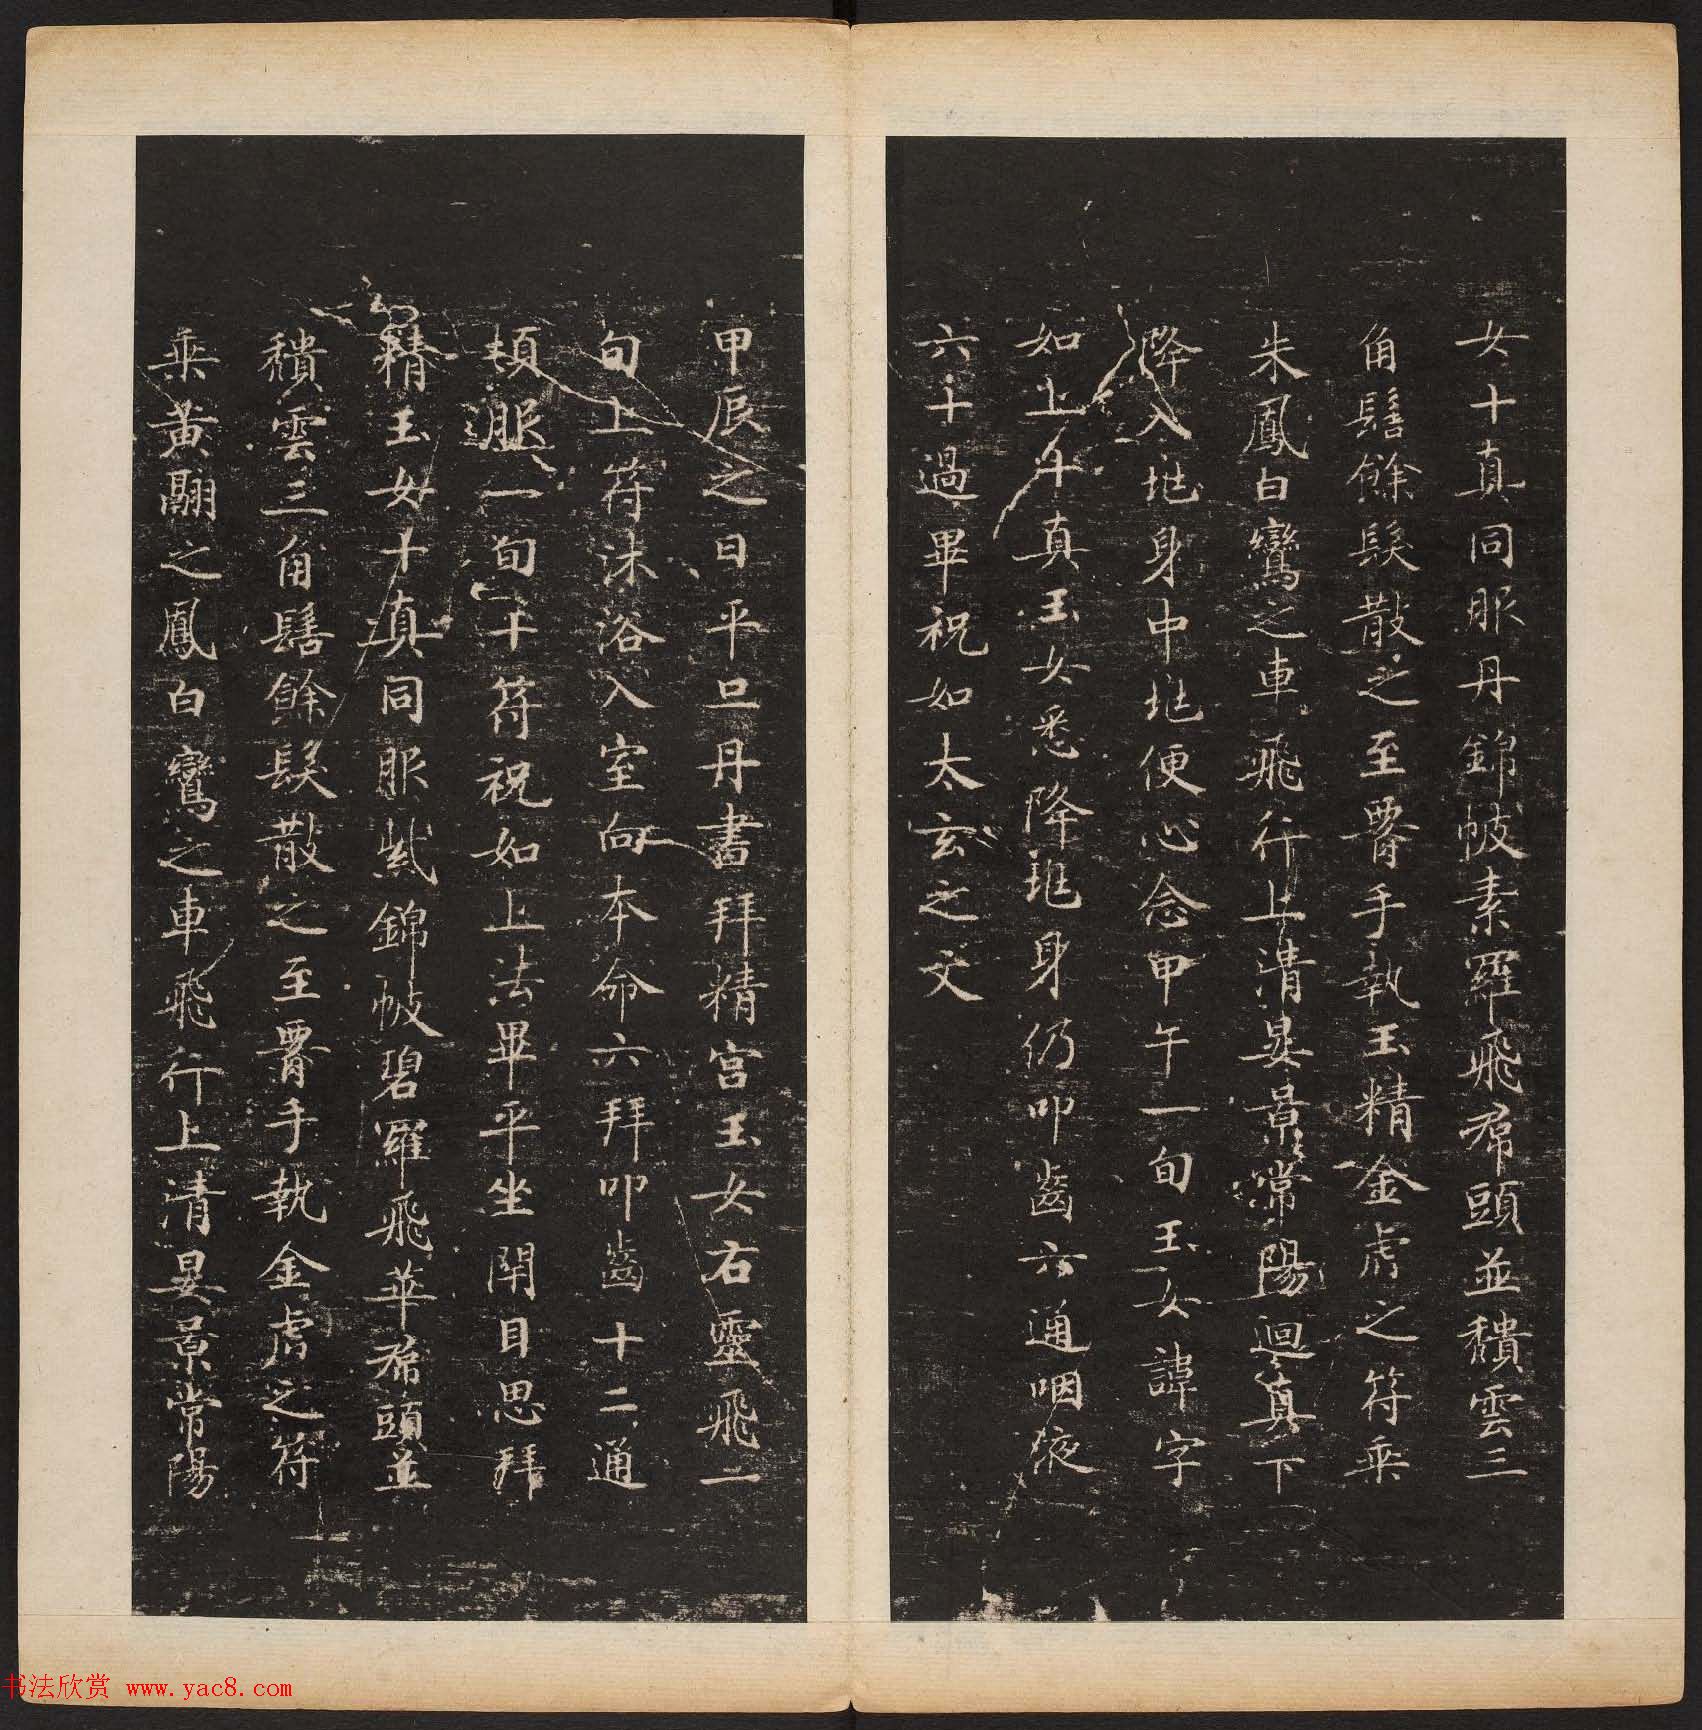 女十真同服丹錦帔素羅飛帬頭並穨雲三
角髻餘髮散之至署手執玉精金虎之符乘
朱鳳白鸞之車飛行上清晏景常陽迴真下
降入坵身中坵便心念甲午一旬玉女諱字
如上十真玉女悉降坵身仍叩齒六通咽液
六十過畢祝如太玄之文
甲辰之日平旦丹書拜精宮玉女右靈飛一
旬上符沐浴入室向本命六拜叩齒十二通
頓服一旬十符祝如上法畢平坐閉目思拜
精玉女十真同服紫錦帔碧羅飛華帬頭並
穨雲三角髻餘髮散之至署手執金虎之符
乘黃翮之鳳白鸞之車飛行上清晏景常陽
书法欣赏 www.yac8.com